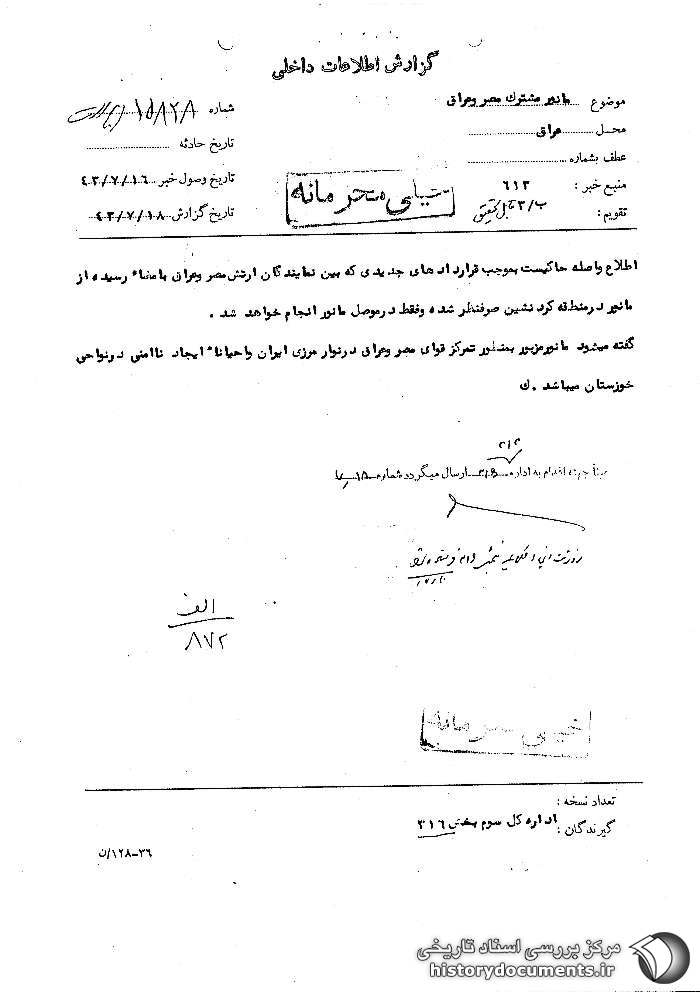 گزارش اطلاعات داخلی
موضوع مانور مشترك مصر وعراق
شماره ۱۵۸۲۸
محل عراق
تاریخ حادثه
عطف بشماره
تاریخ وصول خبر ۴۳/۷/۱۶
منبع خبر : ۶۱۳
خیلی محرمانه
تقویم : ب/۳
تاریخ گزارش ۴۳/۷/۱۸
اطلاع واصله حاکیست بموجب قرارداد های جدیدی که بین نمایندگان ارتش مصر وعراق بامضاء رسیده از
مانور درمنطقه کرد نشین صرفنظر شده وفقط درموصل مانور انجام خواهد شد .
گفته میشود مانورمزبور بمنظور تمرکز قوای مصر وعراق درنوار مرزی ایران واحیاناً ایجاد ناامنی درنواحی
خوزستان میباشد . ك
اقدام به اداره ارسال میگردد شماره
الف
۸۷۲
خیلی محرمانه
تعداد نسخه :
گیرندگان : اداره کل سوم بخش ۳۱۶
۳۶-۱۲۸/ن
مرکز بررسی اسناد تاریخی
historydocuments.ir